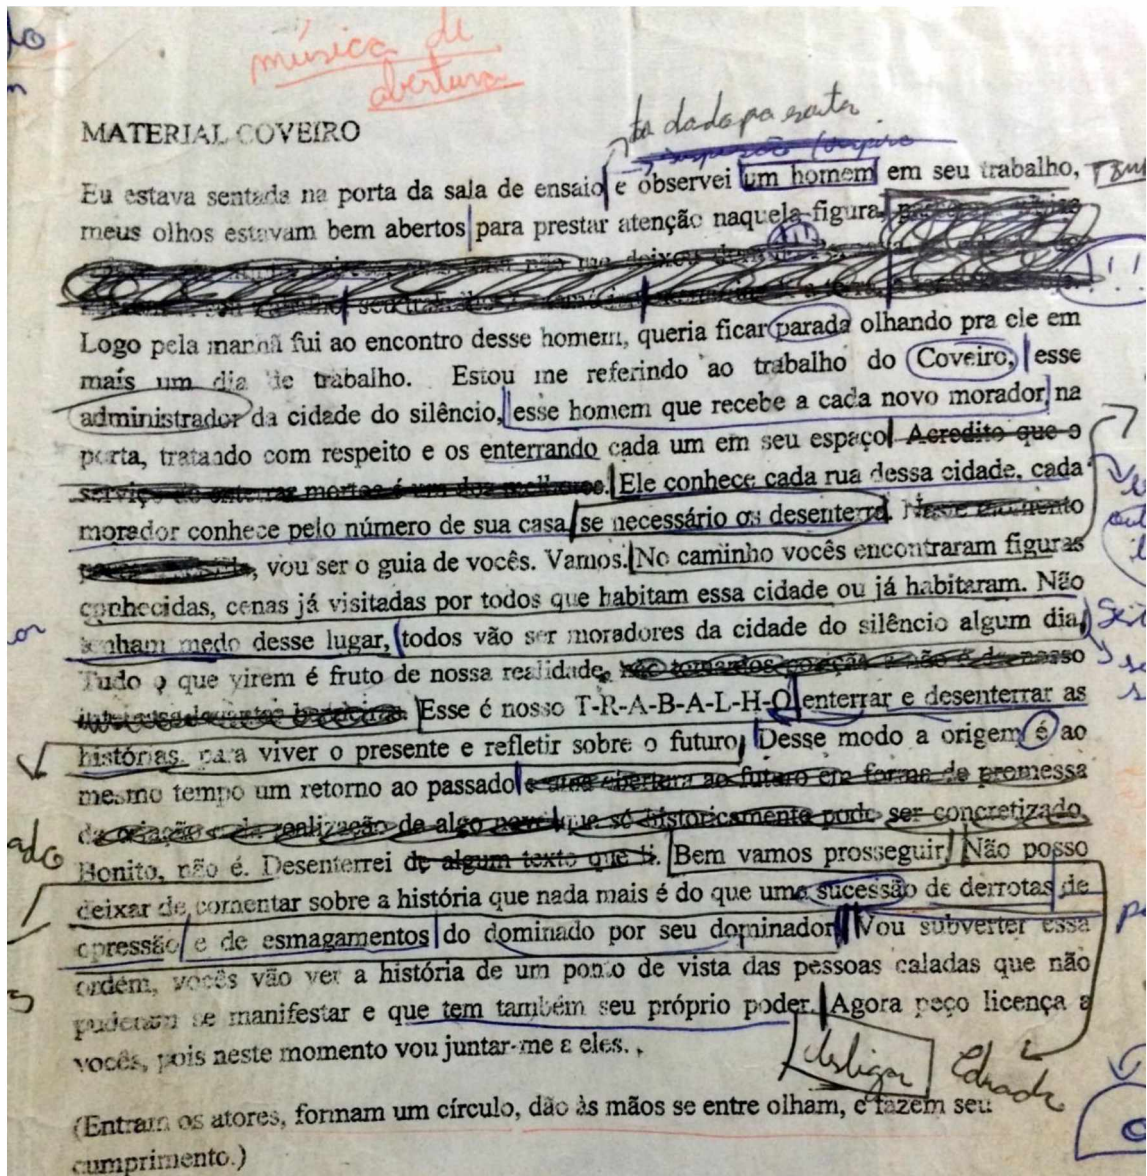 música de
abertura
MATERIAL COVEIRO
Eu estava sentada na porta da sala de ensaio e observei um homem em seu trabalho,
meus olhos estavam bem abertos para prestar atenção naquela figura,
não me deixou
seu trabalho
!!!
Logo pela manhã fui ao encontro desse homem, queria ficar parada olhando pra ele em
mais um dia de trabalho. Estou me referindo ao trabalho do Coveiro, esse
administrador da cidade do silêncio, esse homem que recebe a cada novo morador na
porta, tratando com respeito e os enterrando cada um em seu espaço. Acredito que o
serviço de enterrar mortos é um dos melhores. Ele conhece cada rua dessa cidade, cada
morador conhece pelo número de sua casa, se necessário os desenterra. Neste momento
, vou ser o guia de vocês. Vamos. No caminho vocês encontraram figuras
conhecidas, cenas já visitadas por todos que habitam essa cidade ou já habitaram. Não
tenham medo desse lugar, todos vão ser moradores da cidade do silêncio algum dia.
Tudo o que virem é fruto de nossa realidade,
Esse é nosso T-R-A-B-A-L-H-O enterrar e desenterrar as
histórias, para viver o presente e refletir sobre o futuro. Desse modo a origem é ao
mesmo tempo um retorno ao passado e uma abertura ao futuro em forma de promessa
da criação e da realização de algo novo que só historicamente pode ser concretizado.
Bonito, não é. Desenterrei de algum texto que li. Bem vamos prosseguir. Não posso
deixar de comentar sobre a história que nada mais é do que uma sucessão de derrotas de
opressão e de esmagamentos do dominado por seu dominador. Vou subverter essa
ordem, vocês vão ver a história de um ponto de vista das pessoas caladas que não
puderam se manifestar e que tem também seu próprio poder. Agora peço licença a
vocês, pois neste momento vou juntar-me a eles.
desligar
(Entram os atores, formam um círculo, dão às mãos se entre olham, e fazem seu
cumprimento.)